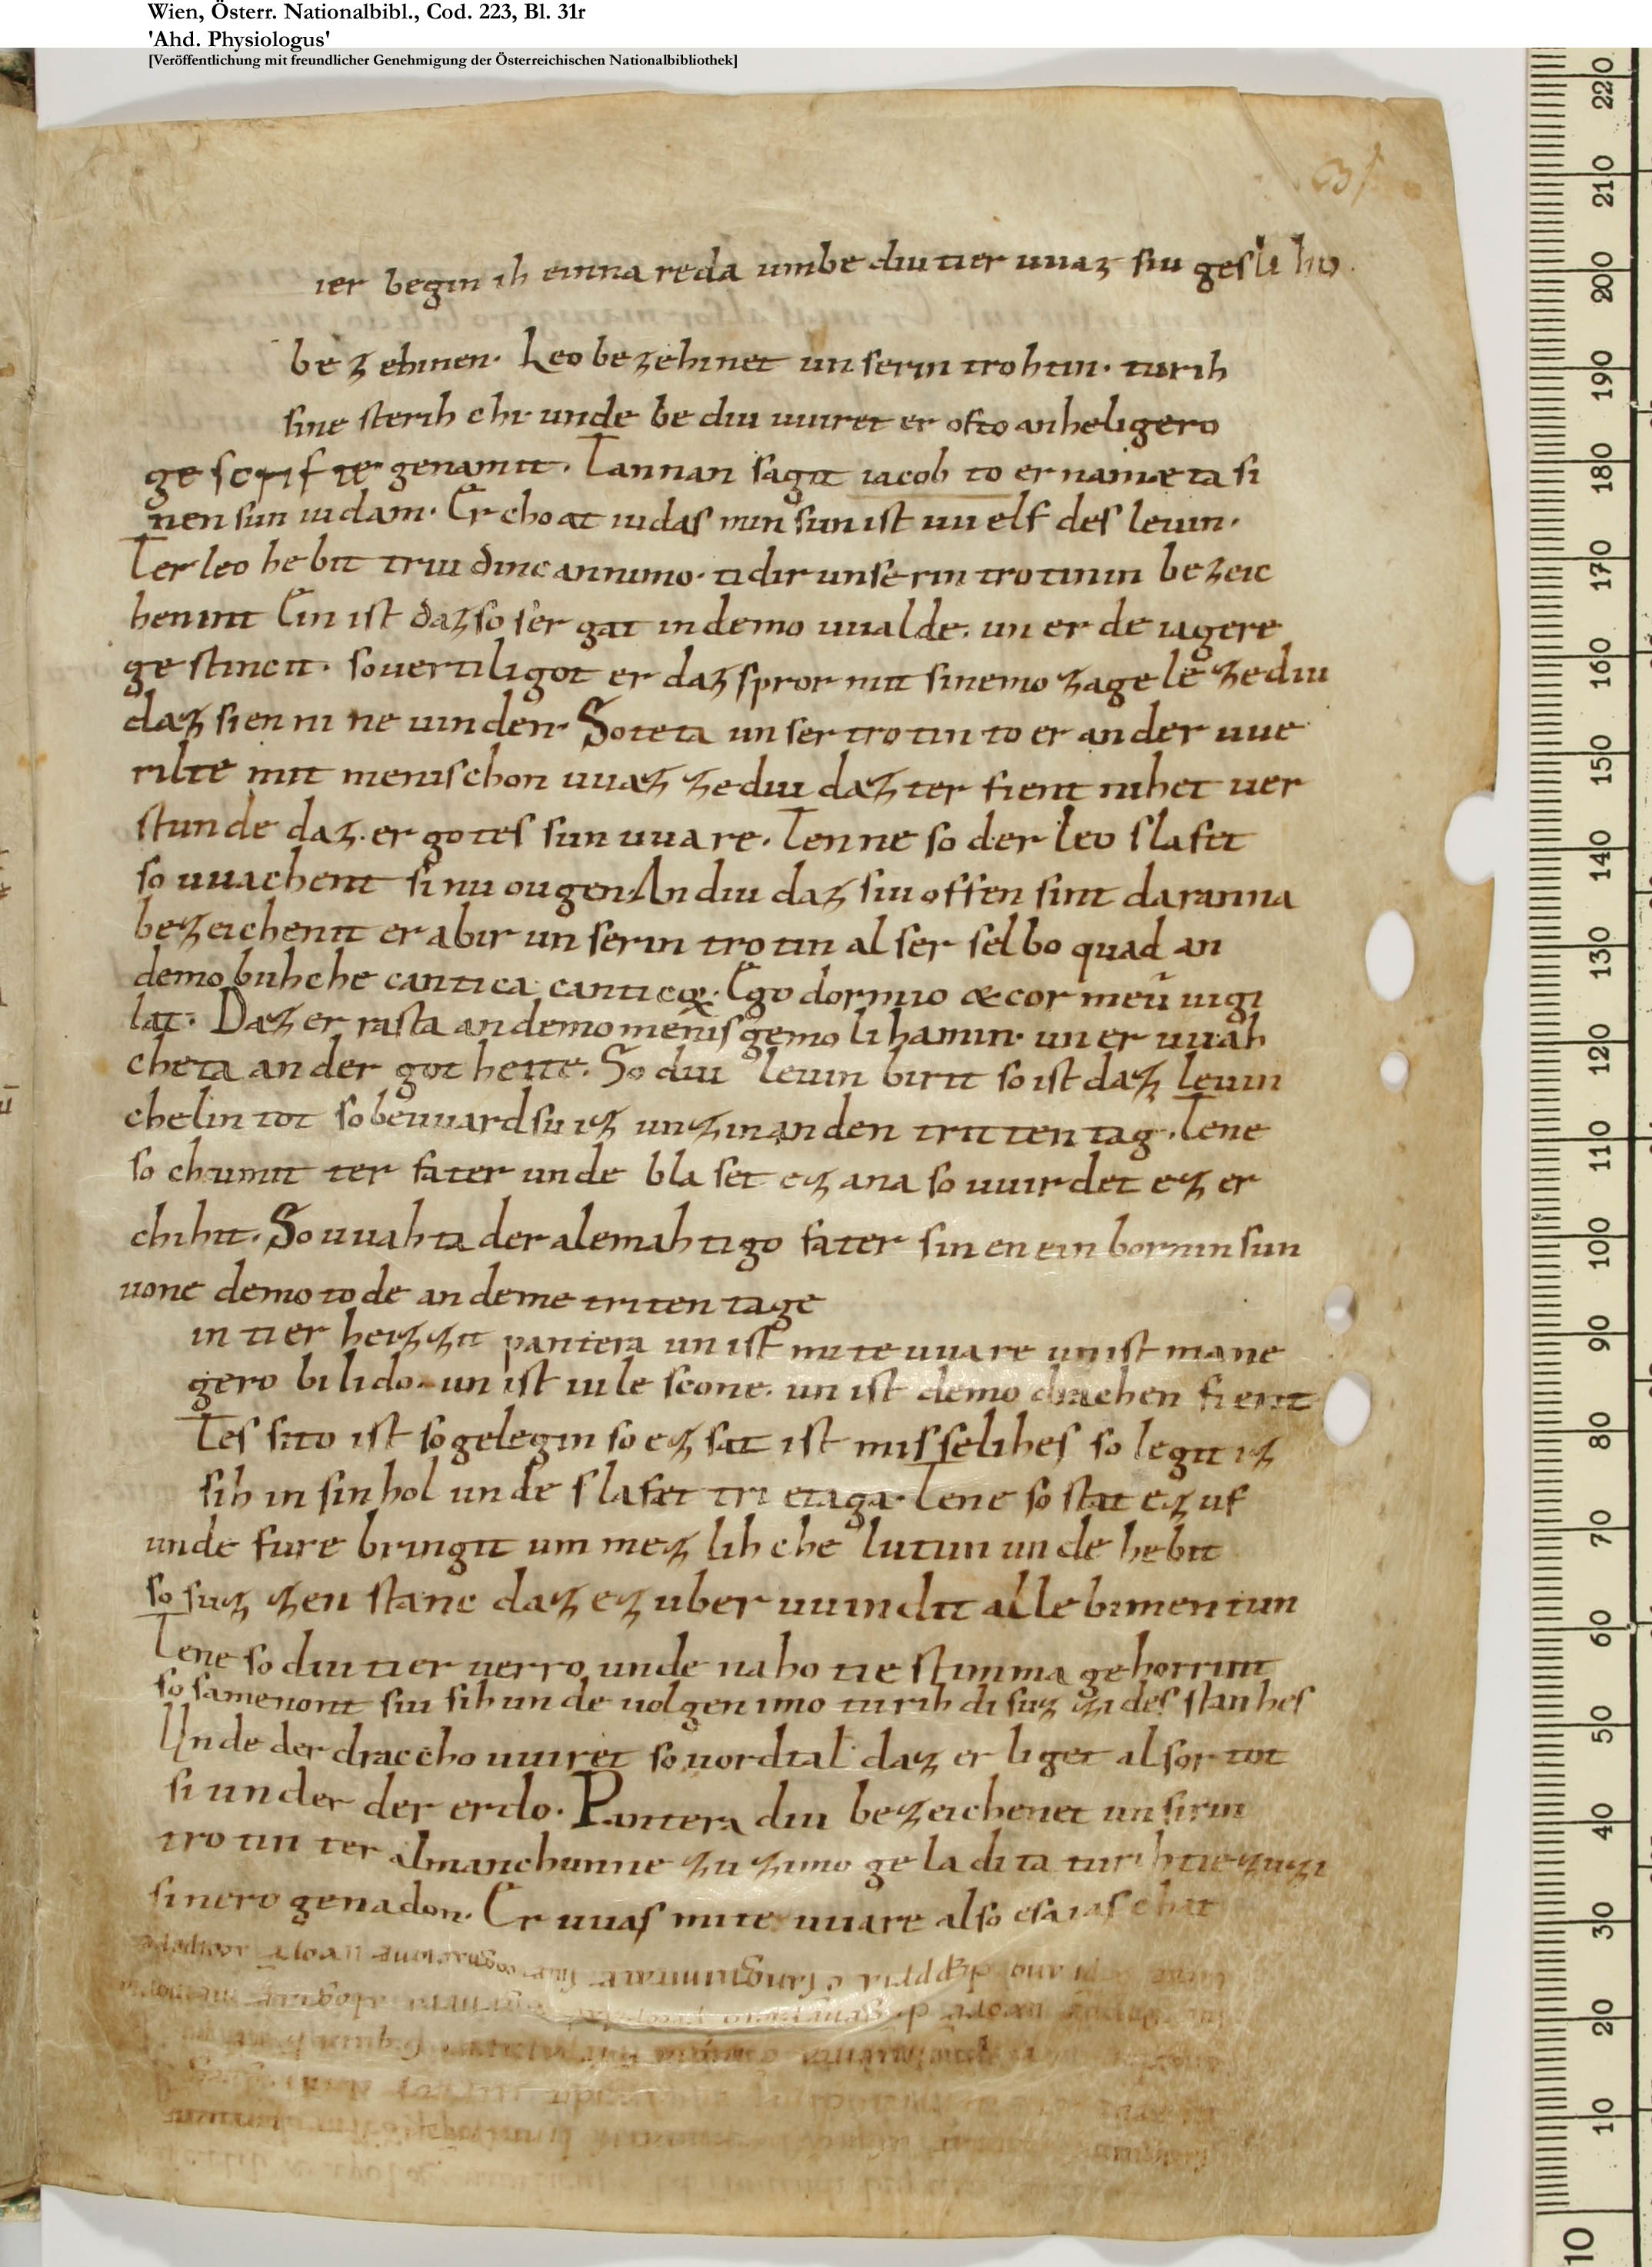 Wien, Österr. Nationalbibl., Cod. 223, Bl. 31r
'Ahd. Physiologus'
[Veröffentlichung mit freundlicher Genehmigung der Österreichischen Nationalbibliothek]
31
ier begin ih einna reda umbe diu tier uuaz siu gesliho
bezehinen. Leo bezehinet unserin trohtin. turih
sine sterihchi. unde bediu uuiret er ofto an heligero
gescrifte genamit. Tannan sagit iacob to er namæta si
nen sun iudam. Er choat iudas min sun ist uuelf des leuin.
Ter leo hebit triu dinc an nimo. ti dir unserin trotinin bezeic
henint Ein ist daz so ser gat in demo uualde. un er de iagere
gestincit. so uertiligot er daz spror mit sinemo zagele zediu
daz sien ni ne uinden. So teta unser trotin to er an der uue
rilte mit menischon uuaz zediu daz ter fient nihet uer
stunde daz. er gotes sun uuare. Tenne so der leo slafit
so uuachent sinu ougen. An diu daz siu offen sint daranna
bezeichenit er abir unserin trotin alser selbo quad an
demo buhche cantica canticoꝝ. Ego dormio & cor meū uigi
lat. Daz er rasta an demo menisgemo lihamin. un er uuah
cheta an der gotheite. So diu leuin birit so ist daz leuin
chelin tot so beuuard su iz unzin an den tritten tag. Tene
so chumit ter fater unde blaset ez ana so uuirdet ez er
chihit. So uuahta der alemahtigo fater sinen einbornin sun
uone demo tode an deme triten tage
in tier heizzit pantera un ist miteuuare un ist mane
gero bilido. un ist uile scone. un ist demo drachen fient
Tes sito ist so gelegin so ez sat ist misselihes so legit iz
sih in sin hol unde slafæt trietaga. Tene so stat ez uf
unde fure bringit ummezlihche lutun unde hebit
so suzzen stanc daz ez uberuuindit alle bimentun
Tene so diu tier uerro unde naho tie stimma gehorrint
so samenont siu sih unde uolgen imo turih di suzzi des stanhes
Unde der draccho uuiret so uordtal daz er liget alsor tot
si under der erdo. Pantera diu bezeichenet unsirin
trotin ter al manchunne zu zimo geladita turih tie zuzi
sinero genadon. Er uuas miteuuare also esaias chat